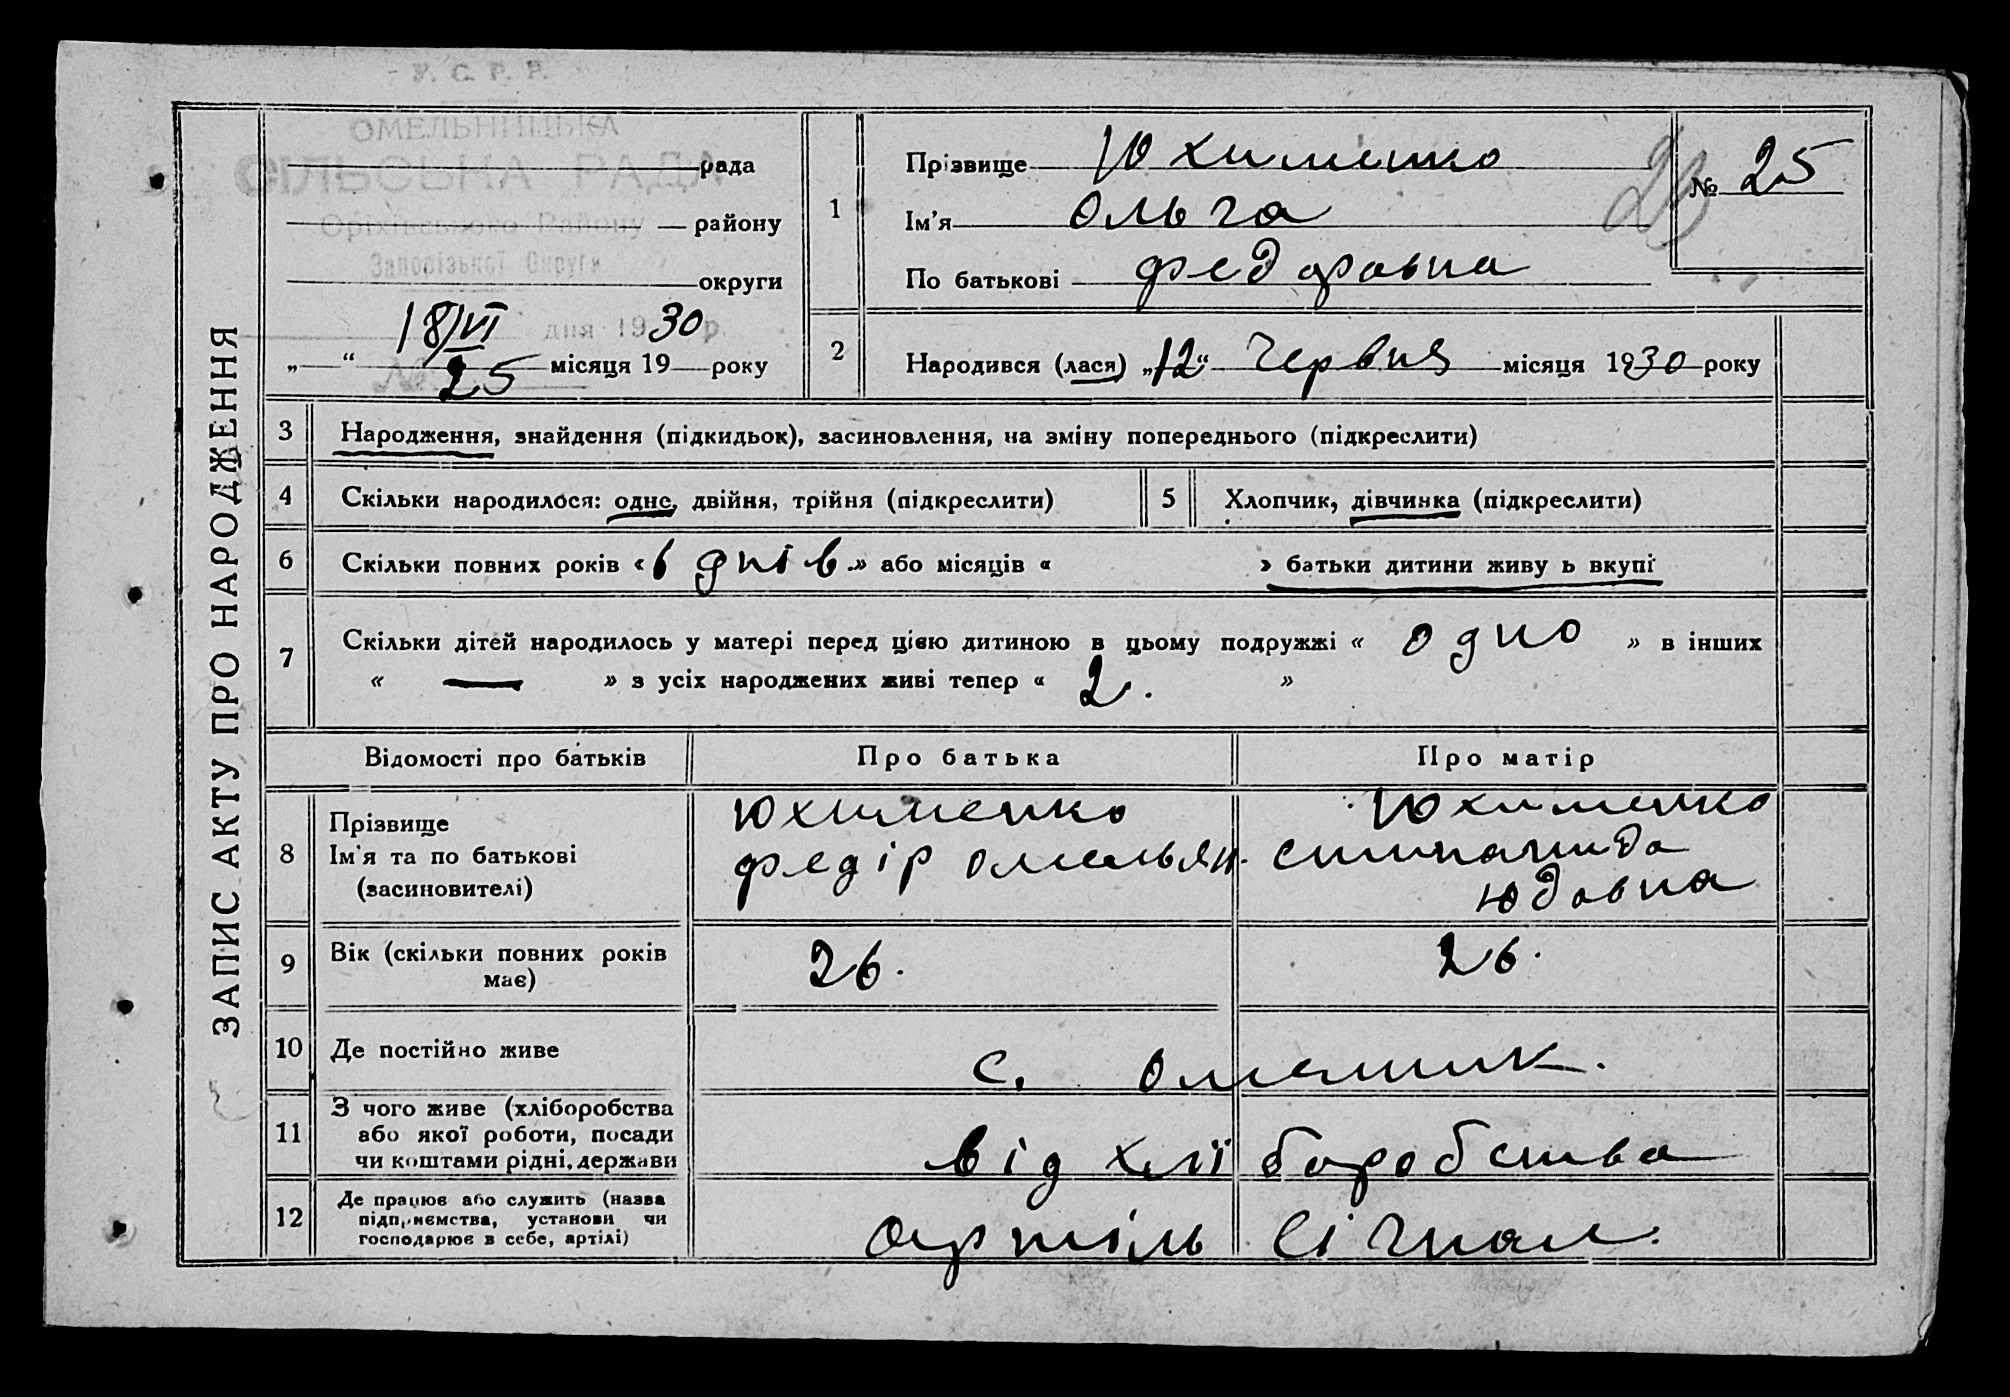 У. С. Р. Р.
ОМЕЛЬНИЦЬКА
СІЛЬСЬКА РАДА
рада
Оріхівського Району
району
Запорізької Округи
округи
18/VI дня 1930 р.
№ 25
„ “ місяця 19 року
1
Прізвище Юхименко
Ім’я Ольга
По батькові Федоровна
№ 25
2
Народився (лася) „12“ Червня місяця 1930 року
ЗАПИС АКТУ ПРО НАРОДЖЕННЯ
3 Народження, знайдення (підкидьок), засиновлення, на зміну попереднього (підкреслити)
4 Скільки народилося: одне, двійня, трійня (підкреслити)
5 Хлопчик, дівчинка (підкреслити)
6 Скільки повних років «6 днів» або місяців « » батьки дитини живу ь вкупі
7 Скільки дітей народилось у матері перед цією дитиною в цьому подружжі « одно » в інших
« — » з усіх народжених живі тепер « 2. »
Відомості про батьків
Про батька
Про матір
8
Прізвище
Ім’я та по батькові
(засиновителі)
Юхименко
Федір Омельян.
Юхименко
Юдовна
9
Вік (скільки повних років
має)
26.
26.
10 Де постійно живе
с. Омельник.
11
З чого живе (хліборобства
або якої роботи, посади
чи коштами рідні, держави
від хліборобства
12
Де працює або служить (назва
підприємства, установи чи
господарює в себе, артілі)
Артіль Сігнал.